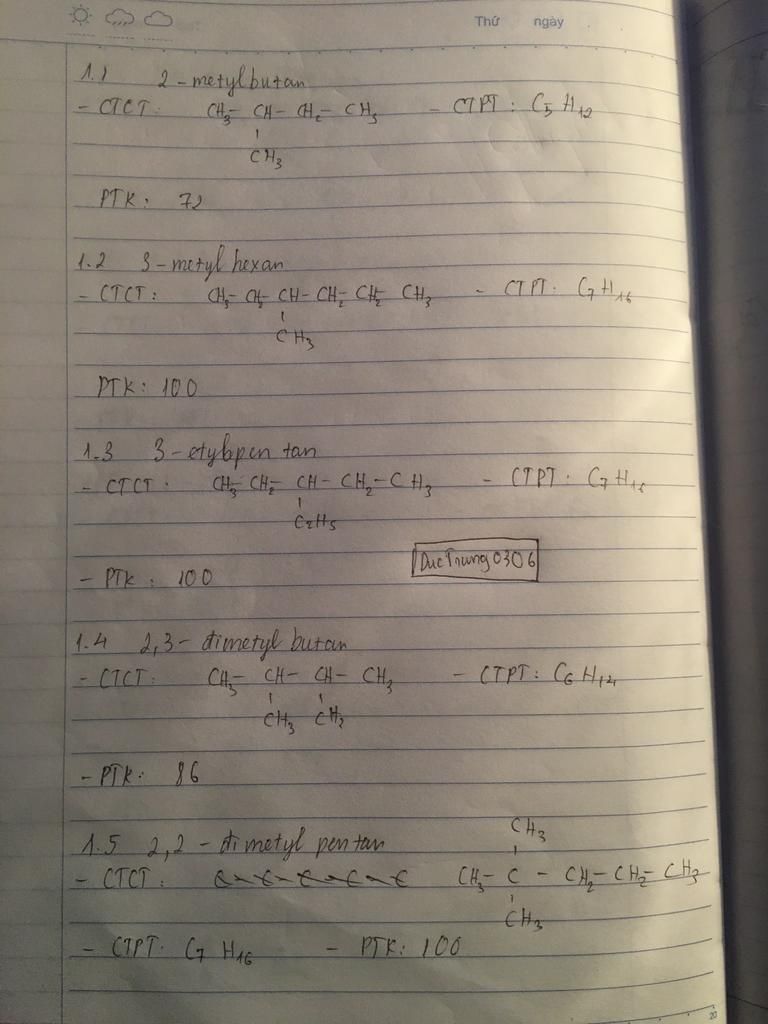 Thứ ngày
1.1 2-metylbutan
- CTCT: CH3- CH- CH2- CH3 - CTPT: C5H12
CH3
PTK: 72
1.2 3-metyl hexan
- CTCT: CH3- CH2- CH- CH2- CH2- CH3 - CTPT: C7H16
CH3
PTK: 100
1.3 3-etylpen tan
- CTCT: CH3- CH2- CH- CH2- CH3 - CTPT: C7H16
C2H5
DucTrung0306
- PTK: 100
1.4 2,3- đimetyl butan
- CTCT: CH3- CH- CH- CH3 - CTPT: C6H14
CH3 CH3
- PTK: 86
CH3
1.5 2,2- đimetyl pen tan
- CTCT: C-C-C-C-C CH3- C - CH2- CH2- CH3
CH3
- CTPT: C7H16 - PTK: 100
20